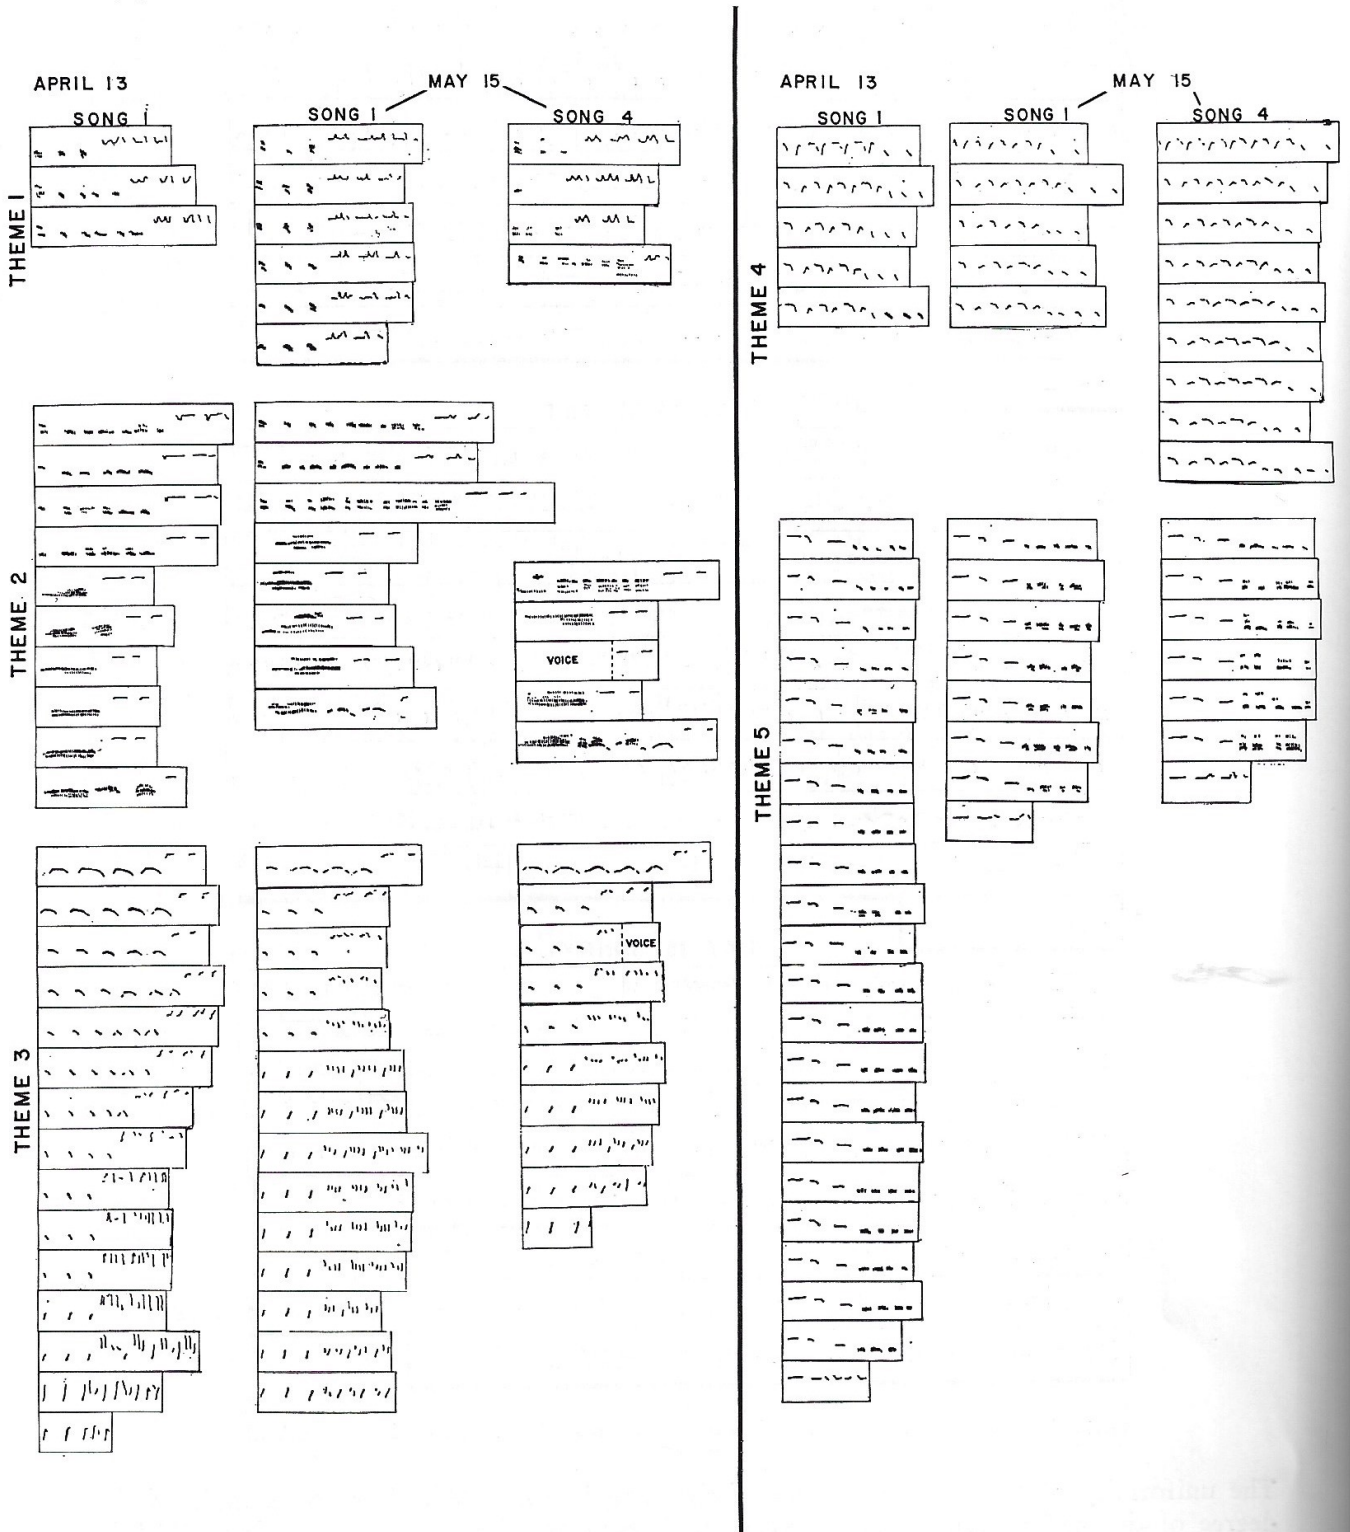 APRIL 13
MAY 15
SONG 1
SONG 1
SONG 4
THEME 1
THEME 2
VOICE
THEME 3
VOICE
APRIL 13
MAY 15
SONG 1
SONG 1
SONG 4
THEME 4
THEME 5